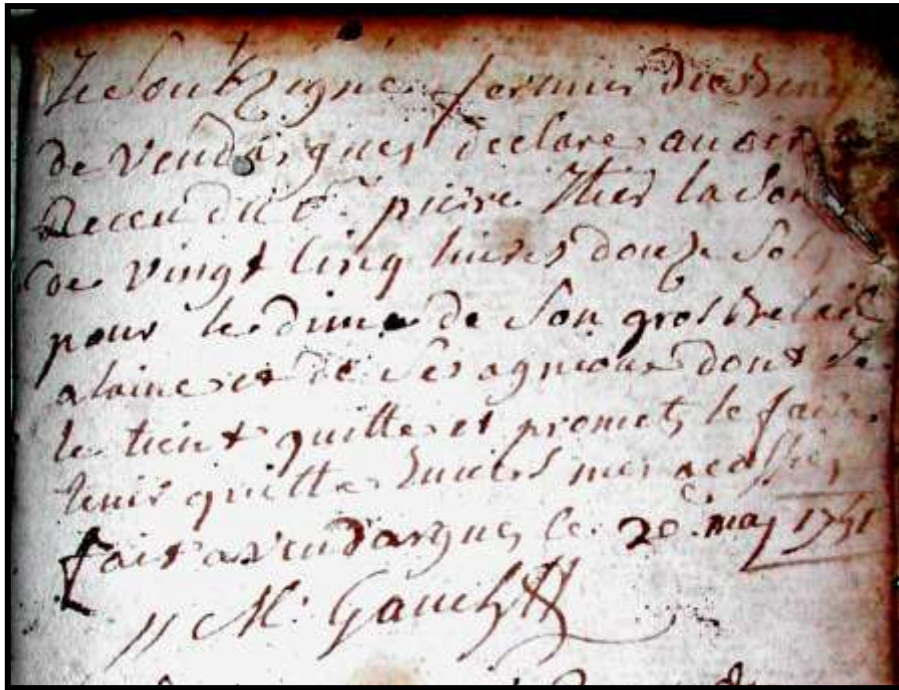 Je Soubzigné fermier
de vendargues declare avoir
Receu du Sr pierre Ither la Som
de vingt cinq livres douze Sols
pour le dime de Son gros
a laine et de Ses agneaux dont Je
le tient quitte et promets le faire
tenir quitte Envers mes
fait a vendargues le 20e may 1751
M. Gauch